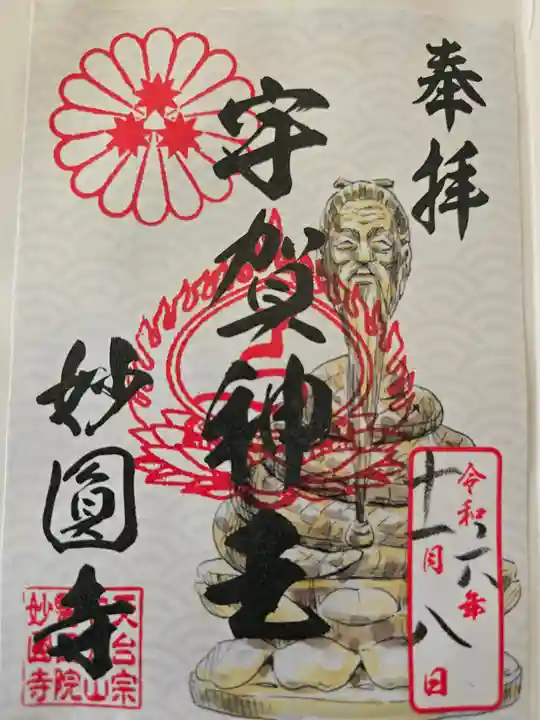 奉拝
宇賀神王
妙圓寺
令和六年
十一月八日
天台宗
妙圓寺